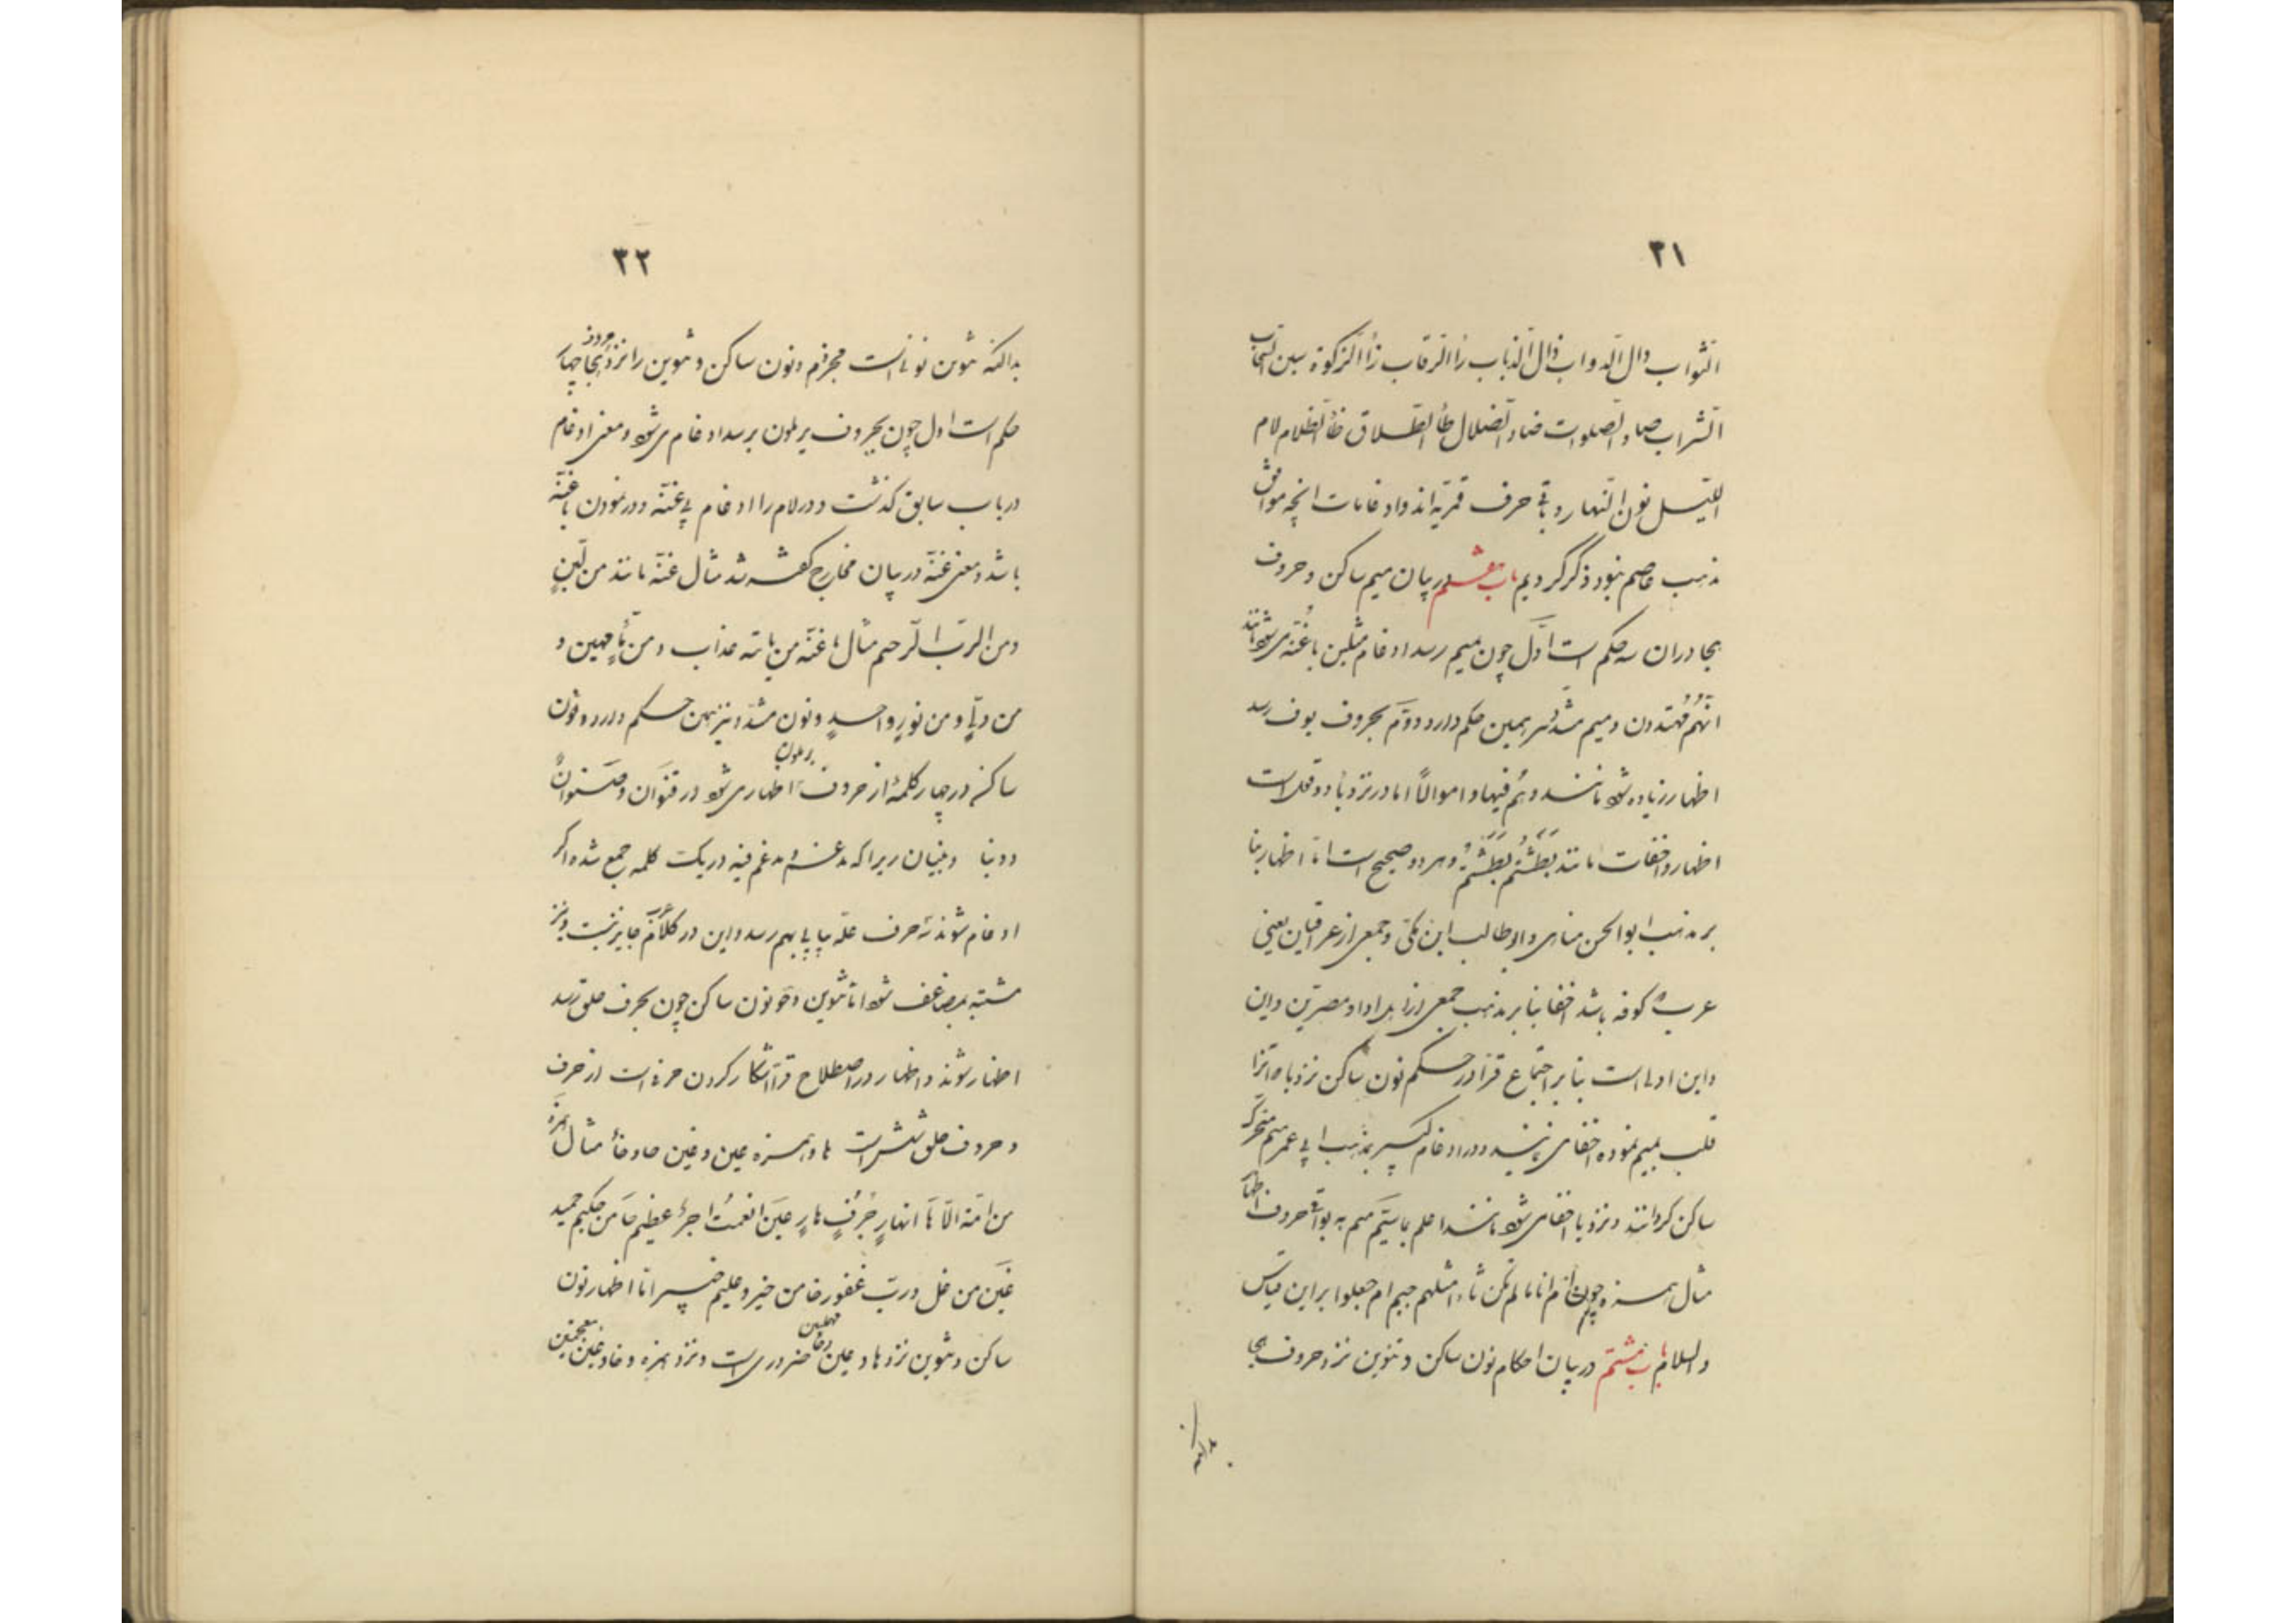 ٣١
الثّواب دال الدّواب ذال الذّباب رأ الرّقاب زأ الزّكوة سين السّحاب
الشّراب صاد الصّلوات ضاد الضّلال طأ الطّلاق ظأ الظّلام لام
اللّيل نون النّهار و باقى حرف قمريّه اند و ادغامات انچه موافق
مذهب عاصم بود ذكر كرديم باب هفتم در بيان ميم ساكن و حروف
هجا دران سه حكم است اوّل چون بميم رسد ادغام مثلين باغنّه مى شود مانند
انّهُم مُهتدون و ميم مشدّد نيز همين حكم دارد دوّم بحروف بوف رسد
اظهار زياده شود مانند و هُم فيها و اموالاً امّا در نزد با دو قول است
اظهار و اخفات مانند بَطَشْتُم بَطَشْتُم و هر دو صحيح است امّا اظهار بنا
بر مذهب ابوالحسن منادى و ابوطالب ابن مكّى و جمعى از عراقيان يعنى
عرب كوفه باشد اخفا بنا بر مذهب جمعى از اهل ادا و مصريّين و اين
و اين اولى است بنا بر اجتماع قرّا در حكم نون ساكن نزد با و انرا
قلب بميم نموده اخفا مى نمايند و در ادغام كبير بمذهب ابى عمر ميم متحرّك
ساكن كردانند و نزد با اخفا مى شود مانند اعلم بما سيّم ميم به بواقى حروف اظهار
مثال همزه چون ام انا تا لم تكن ثاء امثلهم جيم ام جعلوا بر اين قياس
والسلام باب هشتم در بيان احكام نون ساكن و تنوين نزد حروف هجا
بدانكه
٣٢
بدانكه تنوين نونى است مجزوم و نون ساكن و تنوين را نزد حروف هجا چهار
حكم است اول چون بحروف يرملون برسد ادغام مى شود و معنى ادغام
در باب سابق كذشت و در لام را ادغام بى غنّه و در نمودن باغنّه
باشد و معنى غنّه در بيان مخارج كفته شد مثال غنّه مانند من لّبنٍ
و من الرب الرّحيم مثال باغنّه من ياته عذاب و من مّاءٍ مهين و
من وّلىٍّ و من نورٍ واحدٍ و نون مشدّد نيز همين حكم دارد و نون
ساكنه در چهار كلمهٔ از حروف يرملون اظهار مى شود در قنوان و صنوانٌ
و دنيا و بنيان زيرا كه مدغم و مدغم فيه در يك كلمه جمع شده اكر
ادغام شوند سه حرف علّه پياپى بهم رسد و اين در كلام عرب جايز نيست و نيز
مشتبه بمضاعف شود امّا تنوين و نون ساكن چون بحرف حلق رسد
اظهار شوند و اظهار در اصطلاح قرّا آشكار كردن حرفى است از حرف
و حروف حلق شش است ها و همزه عين و غين حا و خا مثال همزه
من امّة الّا ها انهار جُرُفٍ هارٍ عين انعمت اجرٌ عظيم حا من حكيم حميد
غين من غل و ربّ غفور خا من خير و عليم خبير امّا اظهار نون
ساكن و تنوين نزد ها و عين و حا مهملتين ضرورى است و نزد همزه و خا و غين معجمتين